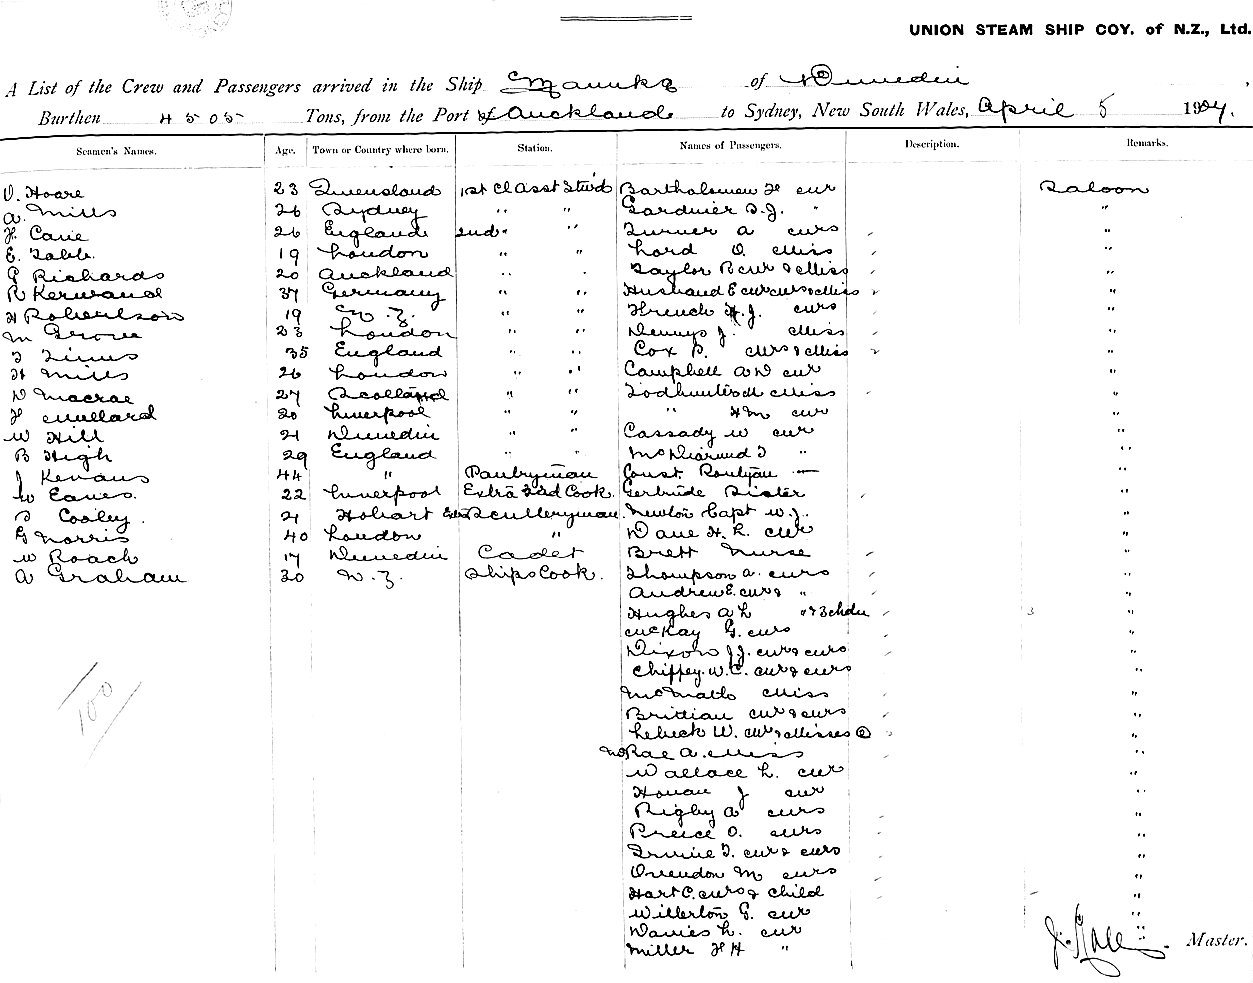 UNION STEAM SHIP COY. of N.Z., Ltd.
A List of the Crew and Passengers arrived in the Ship Manuka of Dunedin,
Burthen 4505 Tons, from the Port of Auckland to Sydney, New South Wales, April 5 1904.
Seamen's Names. Age. Town or Country where born. Station. Names of Passengers. Description. Remarks.
V. Hoare 23 Queensland 1st Class Stwd Bartholomew H Mr Saloon
A. Mills 26 Sydney " " Gardner S.J. " "
H Cave 26 England 2nd " " Turner A Mrs "
E. 19 London " " Lord O. Miss "
G Richards 20 Auckland " " Taylor R Mr & Miss "
R Kerwand 37 Germany " " Husband E Mr Mrs & Miss "
H Robertson 19 N.Z. " " French H.J. Mrs "
M Grove 23 London " " Dennys J. Miss "
T Times 35 England " " Cox P. Mrs & Miss "
H Mills 26 London " " Campbell A D Mr "
D Macrae 27 Scotland " " Todhunter M Miss "
H Mullard 20 Liverpool " " " H M Mr "
W Hill 21 Dunedin " " Cassady W Mr "
B High 29 England " " McDiarmid T " "
J 44 " Pantryman Const. "
W Eaves. 22 Liverpool Extra 2nd Cook. Gertrude Sister "
S Cooley. 21 Hobart Extra Sculleryman. Newton Capt W.J. "
G Norris 40 London " Dane H.R. Mr "
W Roach 17 Dunedin Cadet Brett Nurse "
A Graham 30 N.Z. Ships Cook. Thompson A. Mrs "
Andrew E. Mr & " "
Hughes A L " & 3 chdn 3 "
McKay G. Mrs "
Dixon J.J. Mr & Mrs "
Chiffey. W.C. Mr & Mrs "
McMath Miss "
Brittian Mr & Mrs "
W. Mr & Misses 2 "
McRae A. Miss "
Wallace L. Mr "
Honan J Mr "
Rigby A Mrs "
Preece O. Mrs "
T. Mr & Mrs "
M Mrs "
Hart C. Mrs & Child "
Willerton G. Mr "
Davies L. Mr "
Miller F H " "
Master.
100